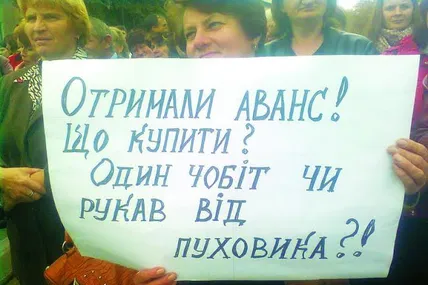 Отримали аванс!
Що купити?
Один чобіт чи
рукав від
пуховика?!